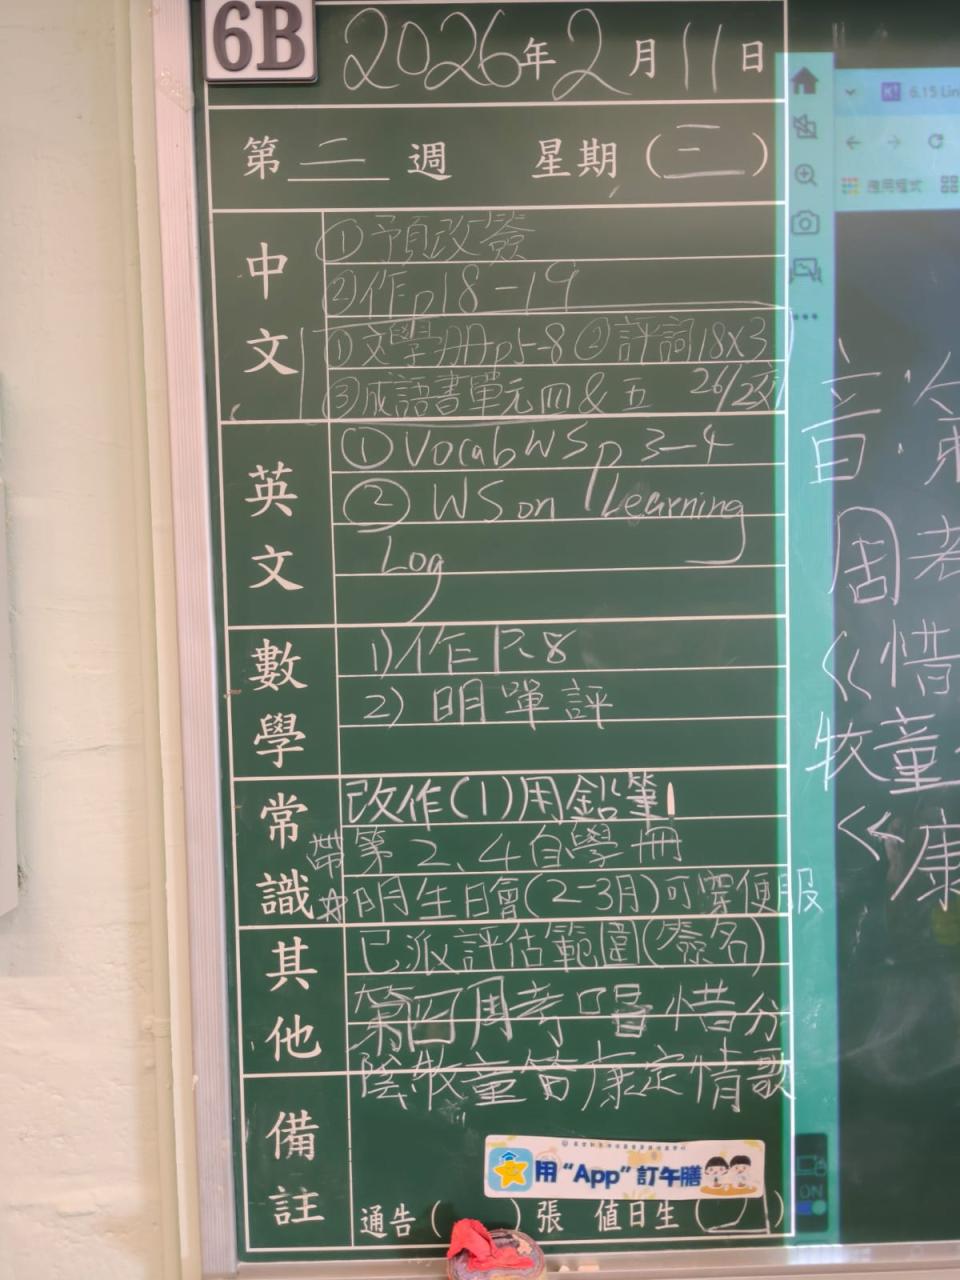 6B
2026年2月11日
第二週 星期(三)
中文
①預改簽
②作p18-19
①文學册p5-8 ②評詞18x3
③成語書單元四&五 26/2交
英文
①Vocab WS p 3-4
② WS on Learning
Log
數學
1)作P.8
2) 明單評
常識
改作(1)用鉛筆!
帶第2、4自學冊
*明生日會(2-3月)可穿便服
其他
已派評估範圍(簽名)
第四周考唱 惜分
陰牧童笛康定情歌
備註
用“App”訂午膳
通告( )張 值日生( )
6.15 Lin
應用程式
音
周考
《惜
牧童
《康
ON